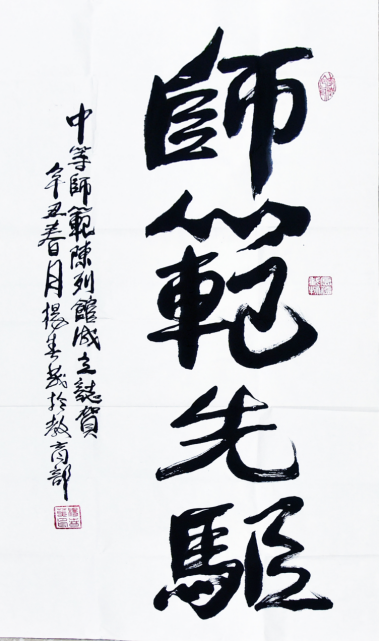 師範先驅
中等師範陳列館成立誌賀
辛丑春月楊春茂於教育部